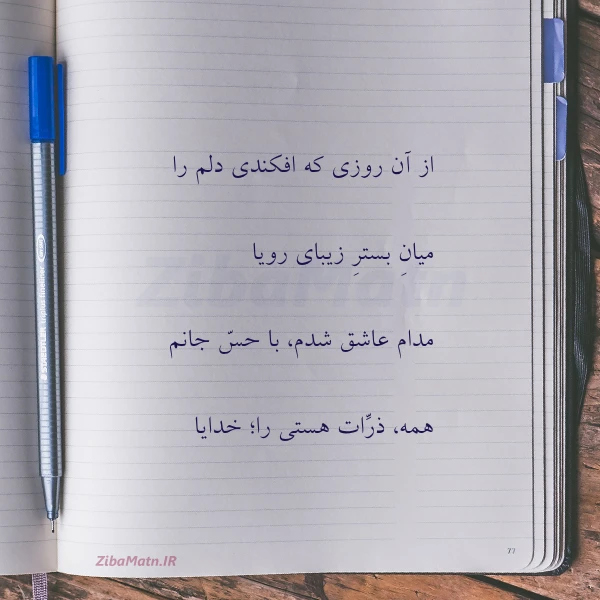 از آن روزی که افکندی دلم را
میانِ بسترِ زیبای رویا
مدام عاشق شدم، با حسّ جانم
همه، ذرِّات هستی را؛ خدایا
ZibaMatn
77
ZibaMatn.IR